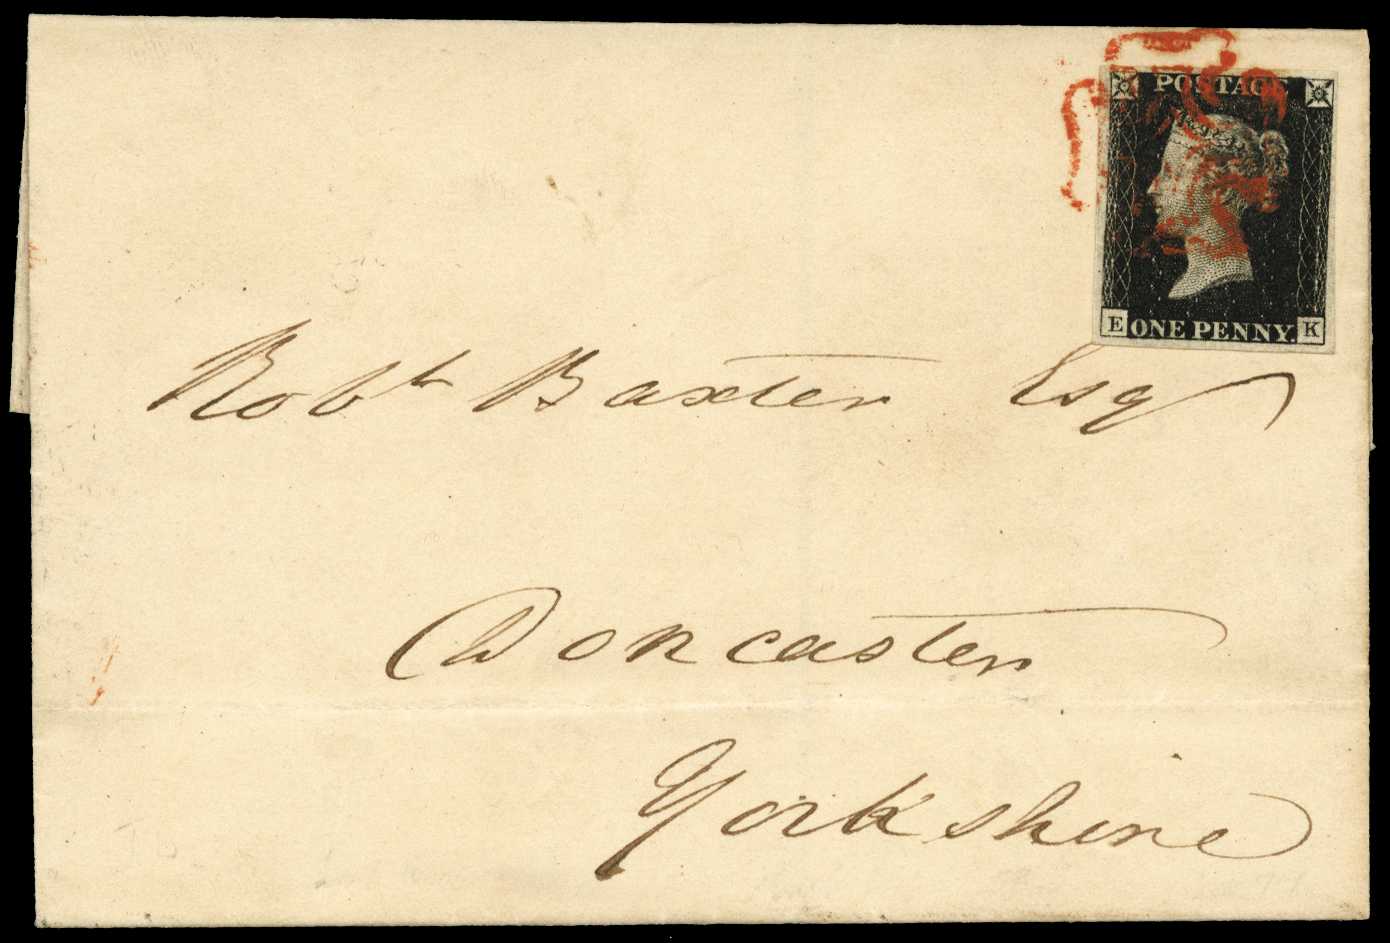 POSTAGE
E ONE PENNY. K
Robt Baxter Esq
Doncaster
Yorkshire